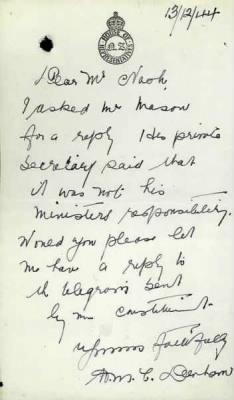 13/12/44
HOUSE OF REPRESENTATIVES N.Z.
Dear Mr Nash,
I asked Mr Mason
for a reply His private
Secretary said that
it was not his
ministers responsibility.
Would you please let
me have a reply to
the telegram sent
by my constituent.
Yours faithfully
Wm. C. Denham